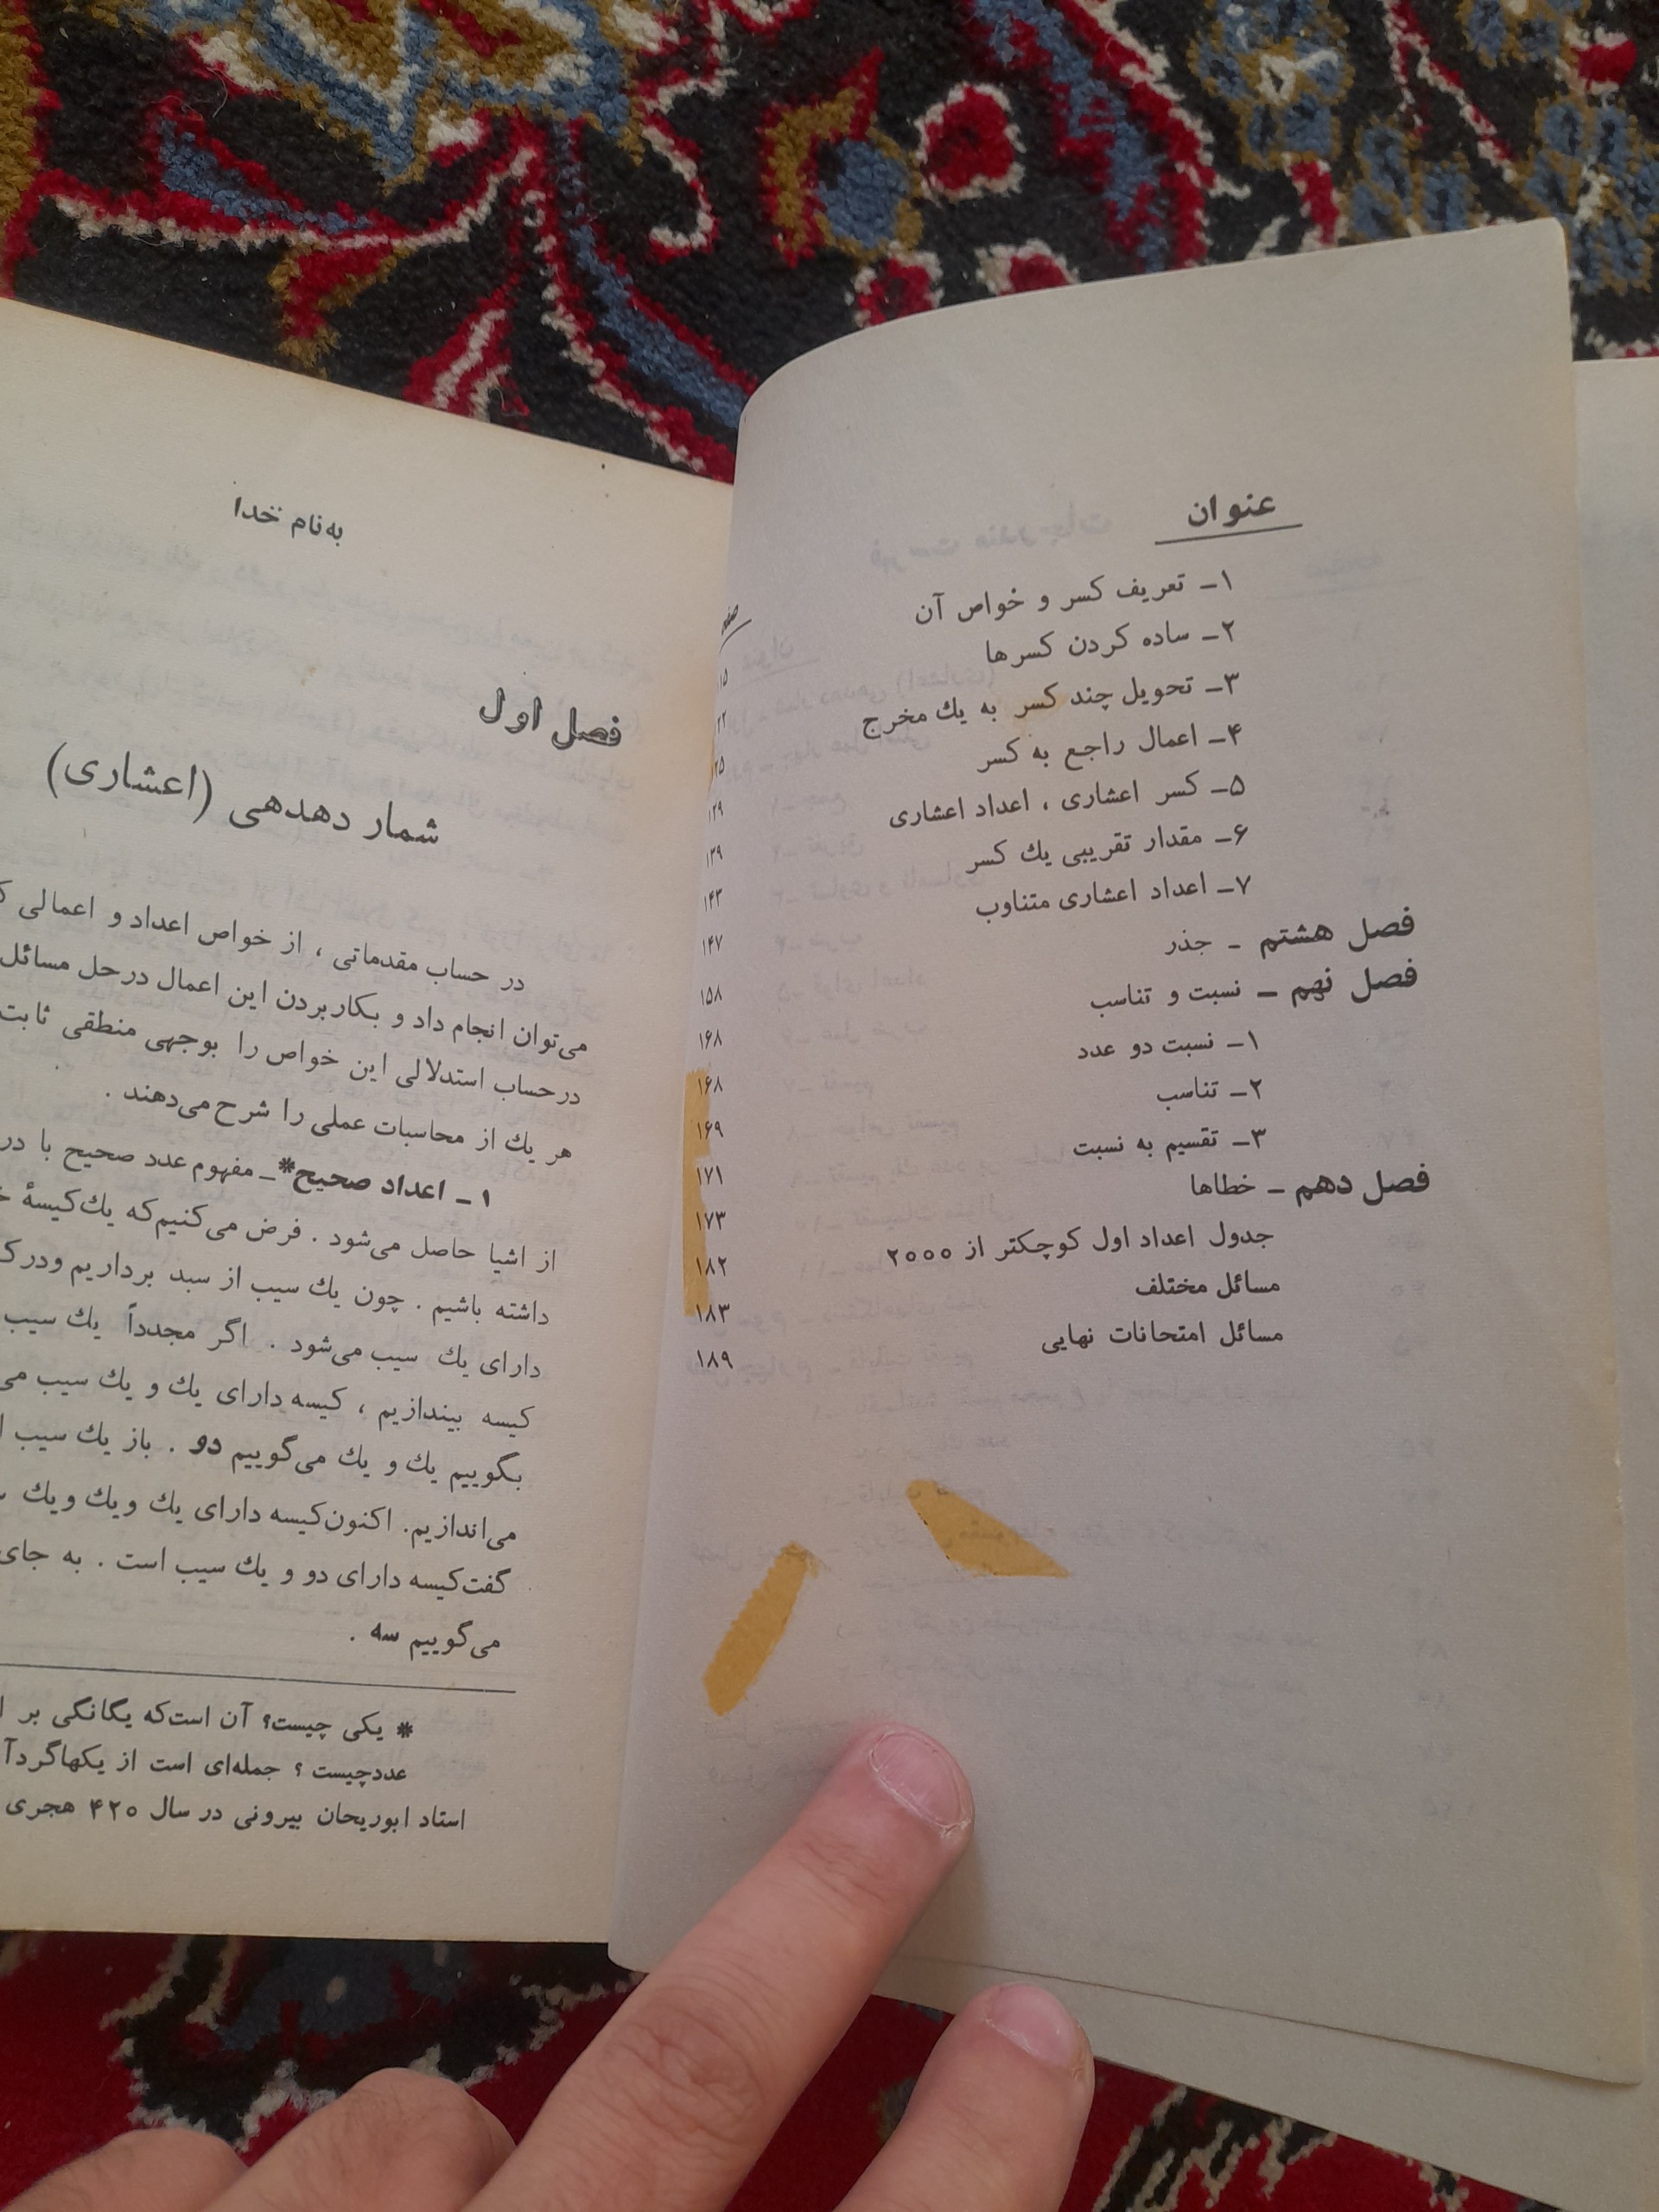 عنوان
۱ـ تعریف کسر و خواص آن ۱۵
۲ـ ساده کردن کسرها ۲۲
۳ـ تحویل چند کسر به یك مخرج ۲۵
۴ـ اعمال راجع به کسر ۱۲۹
۵ـ کسر اعشاری ، اعداد اعشاری ۱۳۹
۶ـ مقدار تقریبی یك کسر ۱۴۳
۷ـ اعداد اعشاری متناوب ۱۴۷
فصل هشتم ـ جذر ۱۵۸
فصل نهم ـ نسبت و تناسب ۱۶۸
۱ـ نسبت دو عدد ۱۶۸
۲ـ تناسب ۱۶۹
۳ـ تقسیم به نسبت ۱۷۱
فصل دهم ـ خطاها ۱۷۳
جدول اعداد اول کوچکتر از ۲۰۰۰ ۱۸۲
مسائل مختلف ۱۸۳
مسائل امتحانات نهایی ۱۸۹
به‌نام خدا
فصل اول
شمار دهدهی (اعشاری)
در حساب مقدماتی ، از خواص اعداد و اعمالی
می‌توان انجام داد و بکاربردن این اعمال درحل مسائل
درحساب استدلالی این خواص را بوجهی منطقی ثابت
هر یك از محاسبات عملی را شرح می‌دهند .
۱ ـ اعداد صحیح* ـ مفهوم عدد صحیح با
از اشیا حاصل می‌شود . فرض می‌کنیم‌که یك‌کیسهٔ
داشته باشیم . چون یك سیب از سبد برداریم
دارای یك سیب می‌شود . اگر مجدداً یك سیب
کیسه بیندازیم ، کیسه دارای یك و یك سیب
بگوییم یك و یك می‌گوییم دو . باز یك سیب
می‌اندازیم. اکنون‌کیسه دارای یك ویك ویك
گفت‌کیسه دارای دو و یك سیب است . به جای
می‌گوییم سه .
* یکی چیست؟ آن است‌که یگانگی بر
عددچیست ؟ جمله‌ای است از یکهاگردآ
استاد ابوریحان بیرونی در سال ۴۲۰ هجری